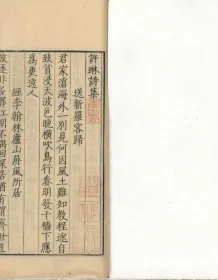 許琳詩集
送新羅客歸
君家滄海外一別見何因風土雖知教程途自
致貧浸天波色晩橫吹鳥行春明發千檣下應
爲更遠人
經李翰林廬山屏風所居